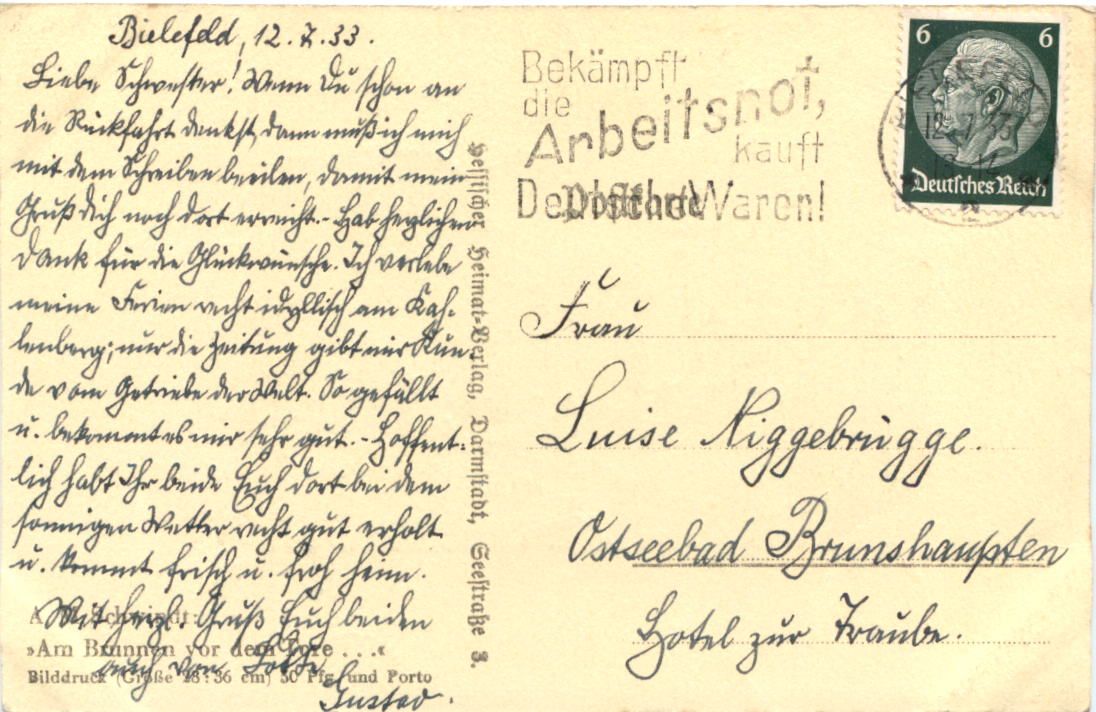 Bielefeld, 12.7.33.
Liebe Schwester! Wenn Du schon an
die Rückfahrt denkst, dann muß ich mich
mit dem Schreiben beeilen, damit mein
Gruß Dich noch dort erreicht. - Hab herzlichen
Dank für die Glückwünsche. Ich verlebe
meine Ferien recht idyllisch am Kah-
lenberg; nur die Zeitung gibt mir Kun-
de vom Getriebe der Welt. So gefällt
u. bekommt es mir sehr gut. - Hoffent-
lich habt Ihr beide Euch dort bei dem
sonnigen Wetter recht gut erholt
u. kommt frisch u. froh heim.
Mit herzl. Gruß Euch beiden
auch von
Gustav.
»Am Brunnen vor dem Tore . . .«
Bilddruck (Größe 28:36 cm) 50 Pfg. und Porto
Hessischer Heimat-Verlag, Darmstadt, Seestraße 3.
Bekämpft
die
Arbeitsnot,
kauft
Deutsche Waren!
Postkarte
6 6
Deutsches Reich
BIELEFELD
12.7.33
Frau
Luise Niggebrügge.
Ostseebad Brunshaupten
Hotel zur Traube.